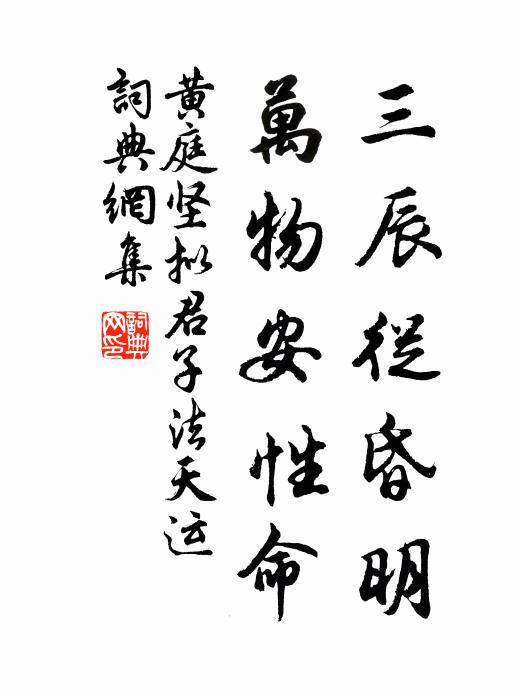 三辰從昏明
萬物安性命
黄庭坚拟君子法天运
詞典網集
詞典网印